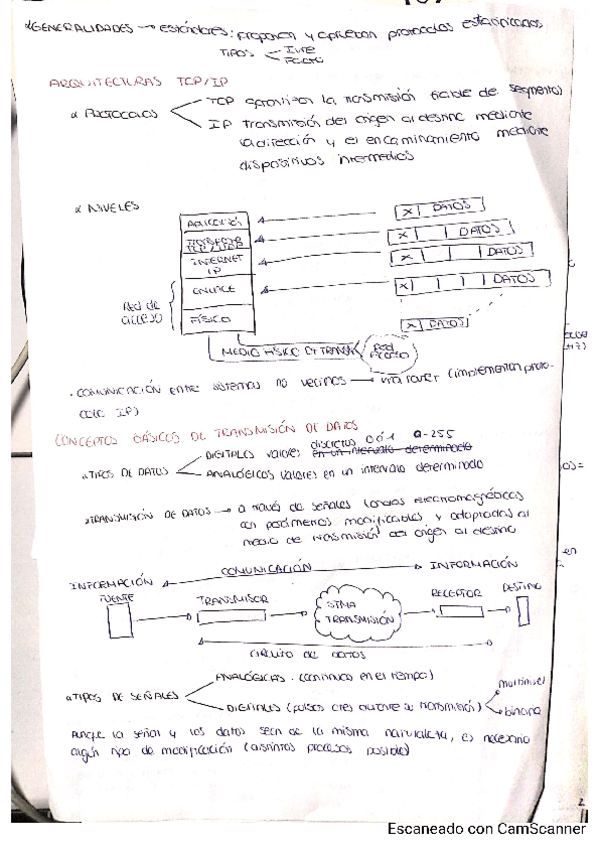 *GENERALIDADES → estándares: proponen y aprueban protocolos estandarizados
TIPOS IURE
FACTO
ARQUITECTURAS TCP/IP
* PROTOCOLOS TCP garantizan la transmisión fiable de segmentos
IP transmisión del origen al destino mediante
la dirección y el encaminamiento mediante
dispositivos intermedios
* NIVELES
APLICACIÓN
X DATOS
TRANSPORTE
TCP / UDP
X DATOS
INTERNET
IP
X DATOS
Red de
acceso
ENLACE
X DATOS
FÍSICO
X DATOS
MEDIO FÍSICO DE TRANSM
Red
ACCESO
· COMUNICACIÓN entre sistemas no vecinos → vía router (implementan proto-
colo IP)
CONCEPTOS BÁSICOS DE TRANSMISIÓN DE DATOS
*TIPOS DE DATOS
DIGITALES valores discretos 0 ó 1 0-255
en un intervalo determinado
ANALÓGICOS valores en un intervalo determinado
*TRANSMISIÓN DE DATOS → a través de señales (ondas electromagnéticas
con parámetros modificables y adaptadas al
medio de transmisión del origen al destino
COMUNICACIÓN
INFORMACIÓN INFORMACIÓN
FUENTE TRANSMISOR STMA TRANSMISIÓN RECEPTOR DESTINO
CIRCUITO DE DATOS
*TIPOS DE SEÑALES
ANALÓGICAS (continuas en el tiempo)
DIGITALES (pulsos ctes durante la transmisión)
multinivel
binaria
Aunque la señal y los datos sean de la misma naturaleza, es necesario
algún tipo de modificación (distintos procesos posible)
2
Escaneado con CamScanner